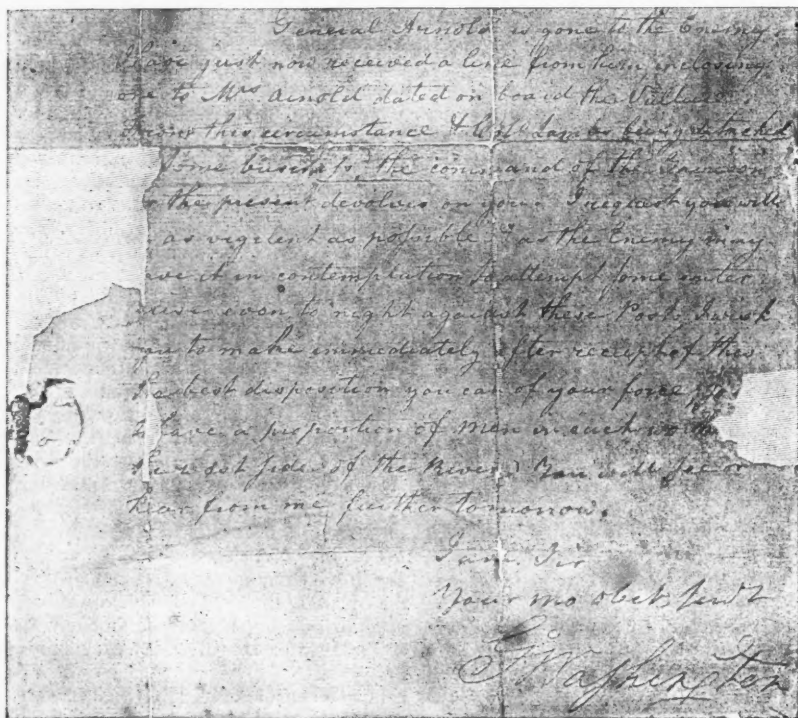 General Arnold is gone to the Enemy.
I have just now received a line from him inclosing
one to Mrs. Arnold dated on board the Vulture.
From this circumstance & Colo. Lamb's being detached
some business, the command of the Garrison
the present devolves on you. I request you will
as vigilent as possible, & as the Enemy may
ave it in contemplation to attempt some enter
prise even to night against these Posts. I wish
you to make immediately after receipt of this
the best disposition you can of your force, so
to have a proportion of men in each work
the west side of the River. You will see or
hear from me further tomorrow.
I am Sir
Your mo obet Servt
G Washington